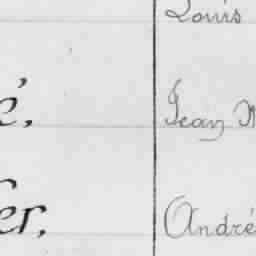 Louis
é, Jean
er, André